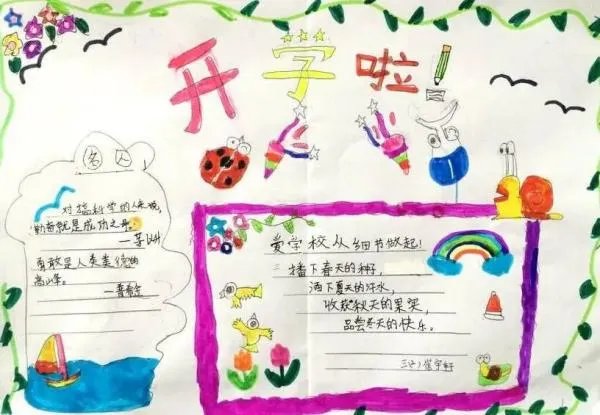 开学啦!
名人
对搞科学的人来说,
勤奋就是成功之母。
勇敢是人类美德的
高山峰。
—普希金
爱学校从细节做起!
播下春天的种子,
洒下夏天的汗水,
收获秋天的果实,
品尝冬天的快乐。